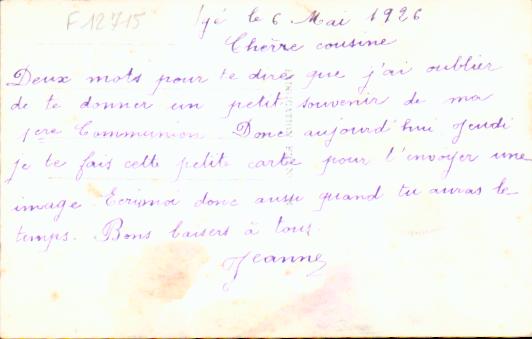 F 12715
Igé le 6 Mai 1926
Chèrre cousine
Deux mots pour te dire que j'ai oublier
de te donner un petit souvenir de ma
1ere Communion. Donc aujourd'hui Jeudi
je te fais cette petite carte pour t'envoyer une
image. Ecrimoi donc aussi quand tu auras le
temps. Bons baisers à tous.
Jeanne